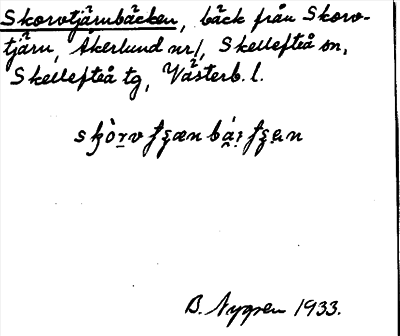 Skorvtjärnbäcken, bäck från Skorv-
tjärn, Åkerlund nr 1, Skellefteå sn,
Skellefteå tg, Västerb. l.
B. Nygren 1933.